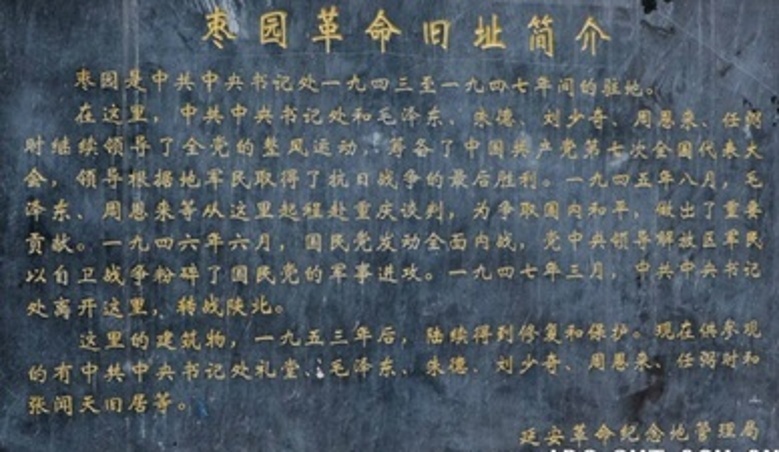 枣园革命旧址简介
枣园是中共中央书记处一九四三至一九四七年间的驻地。
在这里，中共中央书记处和毛泽东、朱德、刘少奇、周恩来、任弼
时继续领导了全党的整风运动，筹备了中国共产党第七次全国代表大
会，领导根据地军民取得了抗日战争的最后胜利。一九四五年八月，毛
泽东、周恩来等从这里起程赴重庆谈判，为争取国内和平，做出了重要
贡献。一九四六年六月，国民党发动全面内战，党中央领导解放区军民
以自卫战争粉碎了国民党的军事进攻。一九四七年三月，中共中央书记
处离开这里，转战陕北。
这里的建筑物，一九五三年后，陆续得到修复和保护。现在供参观
的有中共中央书记处礼堂、毛泽东、朱德、刘少奇、周恩来、任弼时和
张闻天旧居等。
延安革命纪念地管理局